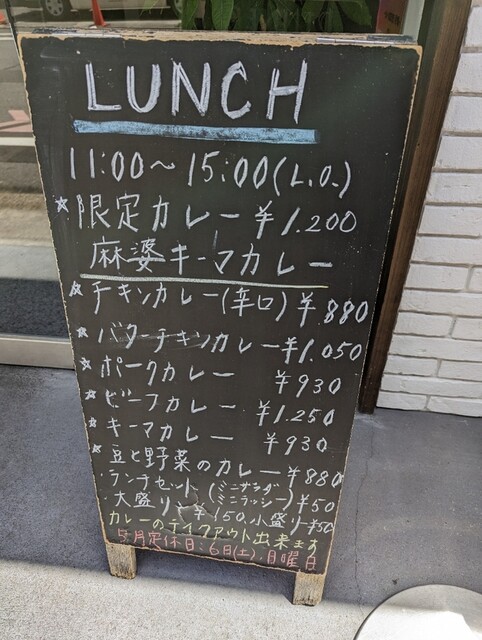 LUNCH
11:00～15:00(L.O.)
☆限定カレー ¥1.200
麻婆キーマカレー
☆チキンカレー(辛口) ¥880
☆バターチキンカレー ¥1.050
☆ポークカレー ¥930
☆ビーフカレー ¥1.250
☆キーマカレー ¥930
☆豆と野菜のカレー ¥880
ランチセット (ミニサラダ ミニラッシー) ¥50
大盛り ¥150, 小盛り -¥50
カレーのテイクアウト出来ます
5月定休日:6日(土), 月曜日